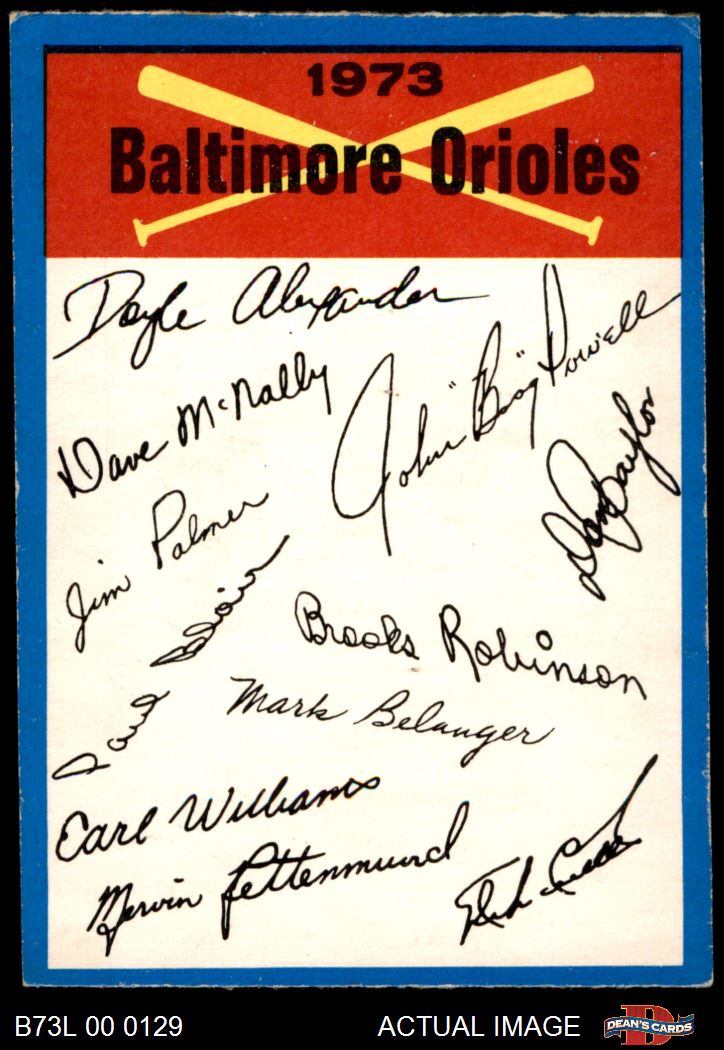 1973
Baltimore Orioles
Doyle Alexander
Dave McNally
John "Boog" Powell
Don Baylor
Jim Palmer
Paul Blair
Brooks Robinson
Mark Belanger
Earl Williams
Mervin Rettenmund
B73L 00 0129
ACTUAL IMAGE
DEAN'S CARDS